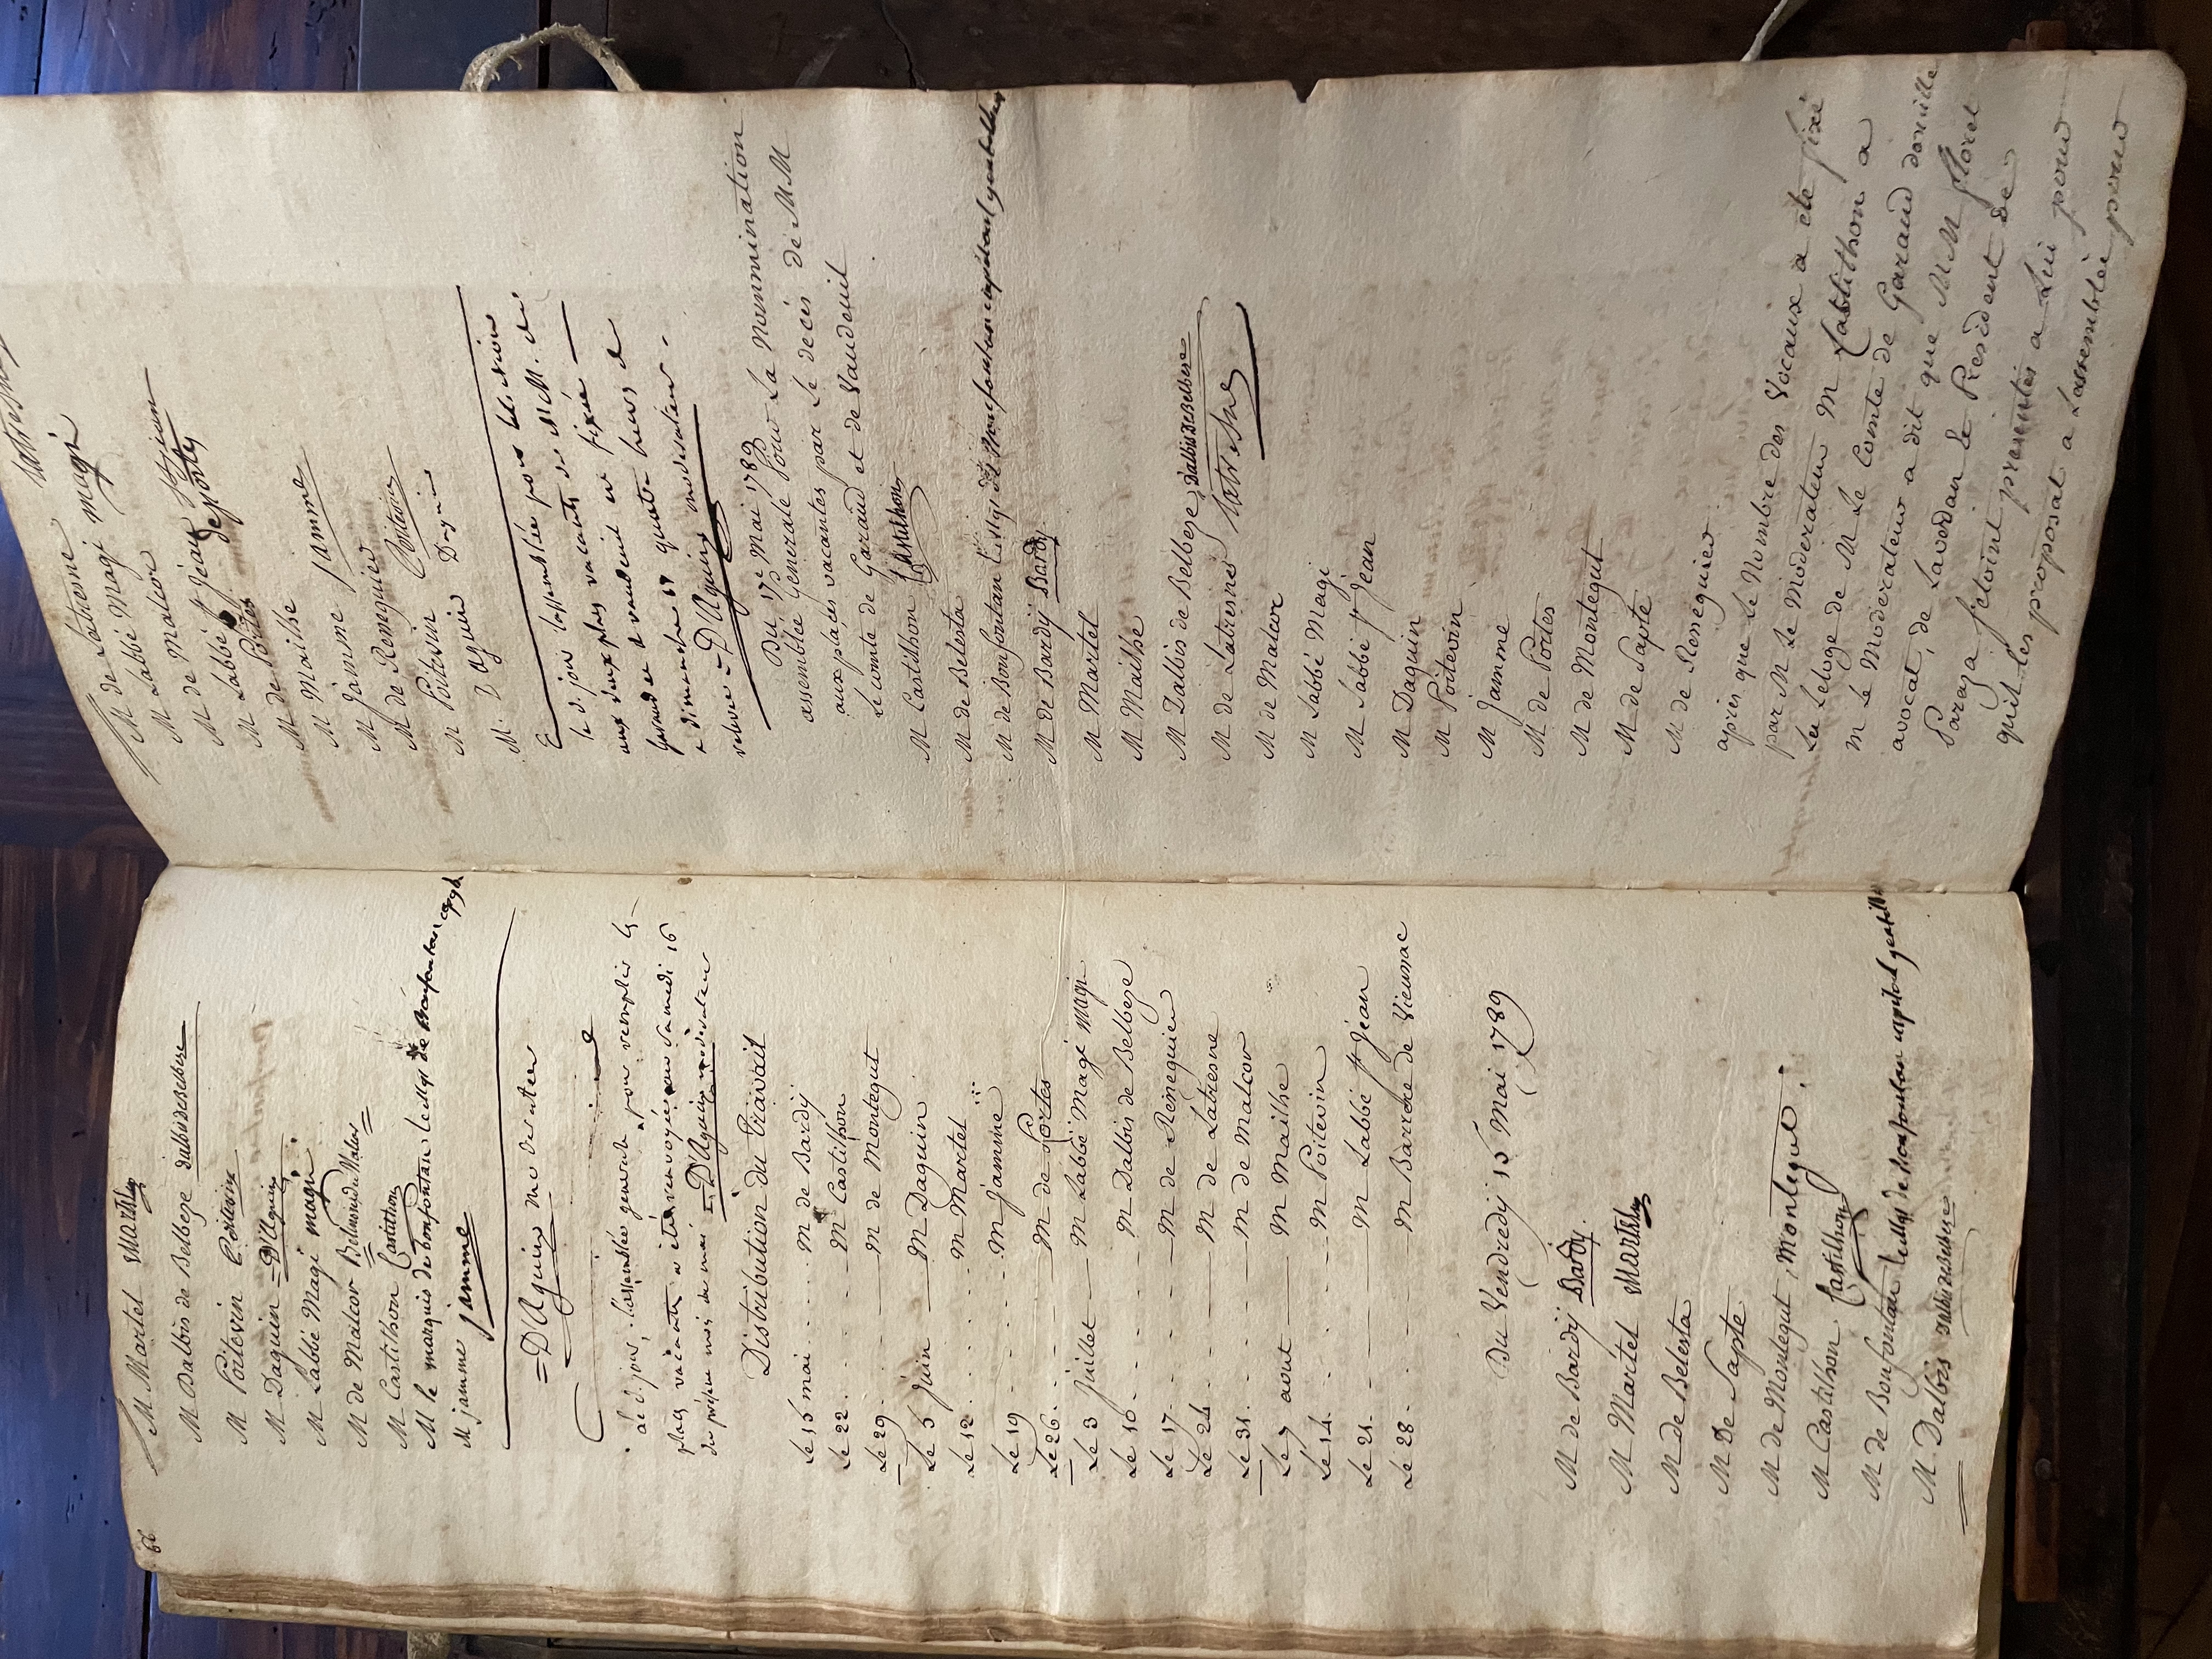 M Martel Martel
M Dalbis de Belbeze Dalbis de Belbeze
M Poitevin Poitevin
M Daguin = D'Aguin
M Labbé Magi magi
M de Malcor
M Castilhon Castilhon
M le marquis de bonfontan le mqs de Bonfontan
M jamme jamme
= D'Aguin moderateur
a de jour, l'assemblée generale pour remplir les
places vacantes a été renvoyée au Samedi 16
du présent mois de mai = D'Aguin moderateur
Distribution du Travail
Le 15 mai M de Bardy
Le 22 M Castilhon
Le 29 M de Montegut
Le 5 Juin M Daguin
Le 12 M Martel
Le 19 M jamme
Le 26 M de Portes
Le 3 Juillet M Labbé Magi Magi
Le 10 M Dalbis de Belbeze
Le 17 M de Reneguier
Le 24 M de Latresne
Le 31 M de Malcor
Le 7 aout M Mailhe
Le 14 M Poitevin
Le 21 M Labbé St Jean
Le 28 M Barrere de Vieusac
Du Vendredy 15 Mai 1789
M de Bardy Bardy
M Martel Martel
M de Belesta
M De Sapte
M de Montegut Montegut
M Castilhon Castilhon
M de Bonfontan le mqs de Bonfontan capitoul gentilh
M Dalbis Dalbis de Belbeze
Latresne
M de Latresne
M Labbé Magi magi
M de Malcor
M Labbé St Jean St jean
M de Portes Deportes
M Mailhe
M Jamme Jamme
M de Reneguier
M Poitevin Poitevin
M. D'Aguin Daguin
Le d. jour l'assemblée pour l'élection
aux deux places vacantes de M.M. de
Garaud et de vaudeuil est fixée
a dimanche 17 a quatre heures de
relevée = D'Aguin moderateur
Du 17e Mai 1789
assemblée Generale Pour La Nommination
aux places vacantes par Le deces de MM
Le comte de Garaud et de Vaudeuil
M Castilhon Castilhon
M de Belesta
M de Bonfontan Le Mqs de Bonfontan capitoul gentilh
M de Bardy Bardy
M Martel
M Mailhe
M Dalbis de Belbeze Dalbis De Belbeze
M de Latresne Latresne
M de Malcor
M Labbé Magi
M Labbé St Jean
M Daguin
M Poitevin
M Jamme
M de Portes
M de Montegut
M de Sapte
M de Reneguier
apres que Le Nombre des Vocaux a ete fixé
par M Le Moderateur M Castilhon a
Lu Leloge de M Le Comte de Garaud
M Le Moderateur a dit que MM floret
avocat, de Lavedan Le President de
Paraza setoint presentés a Lui pour
quil les proposat a Lassemblée pour